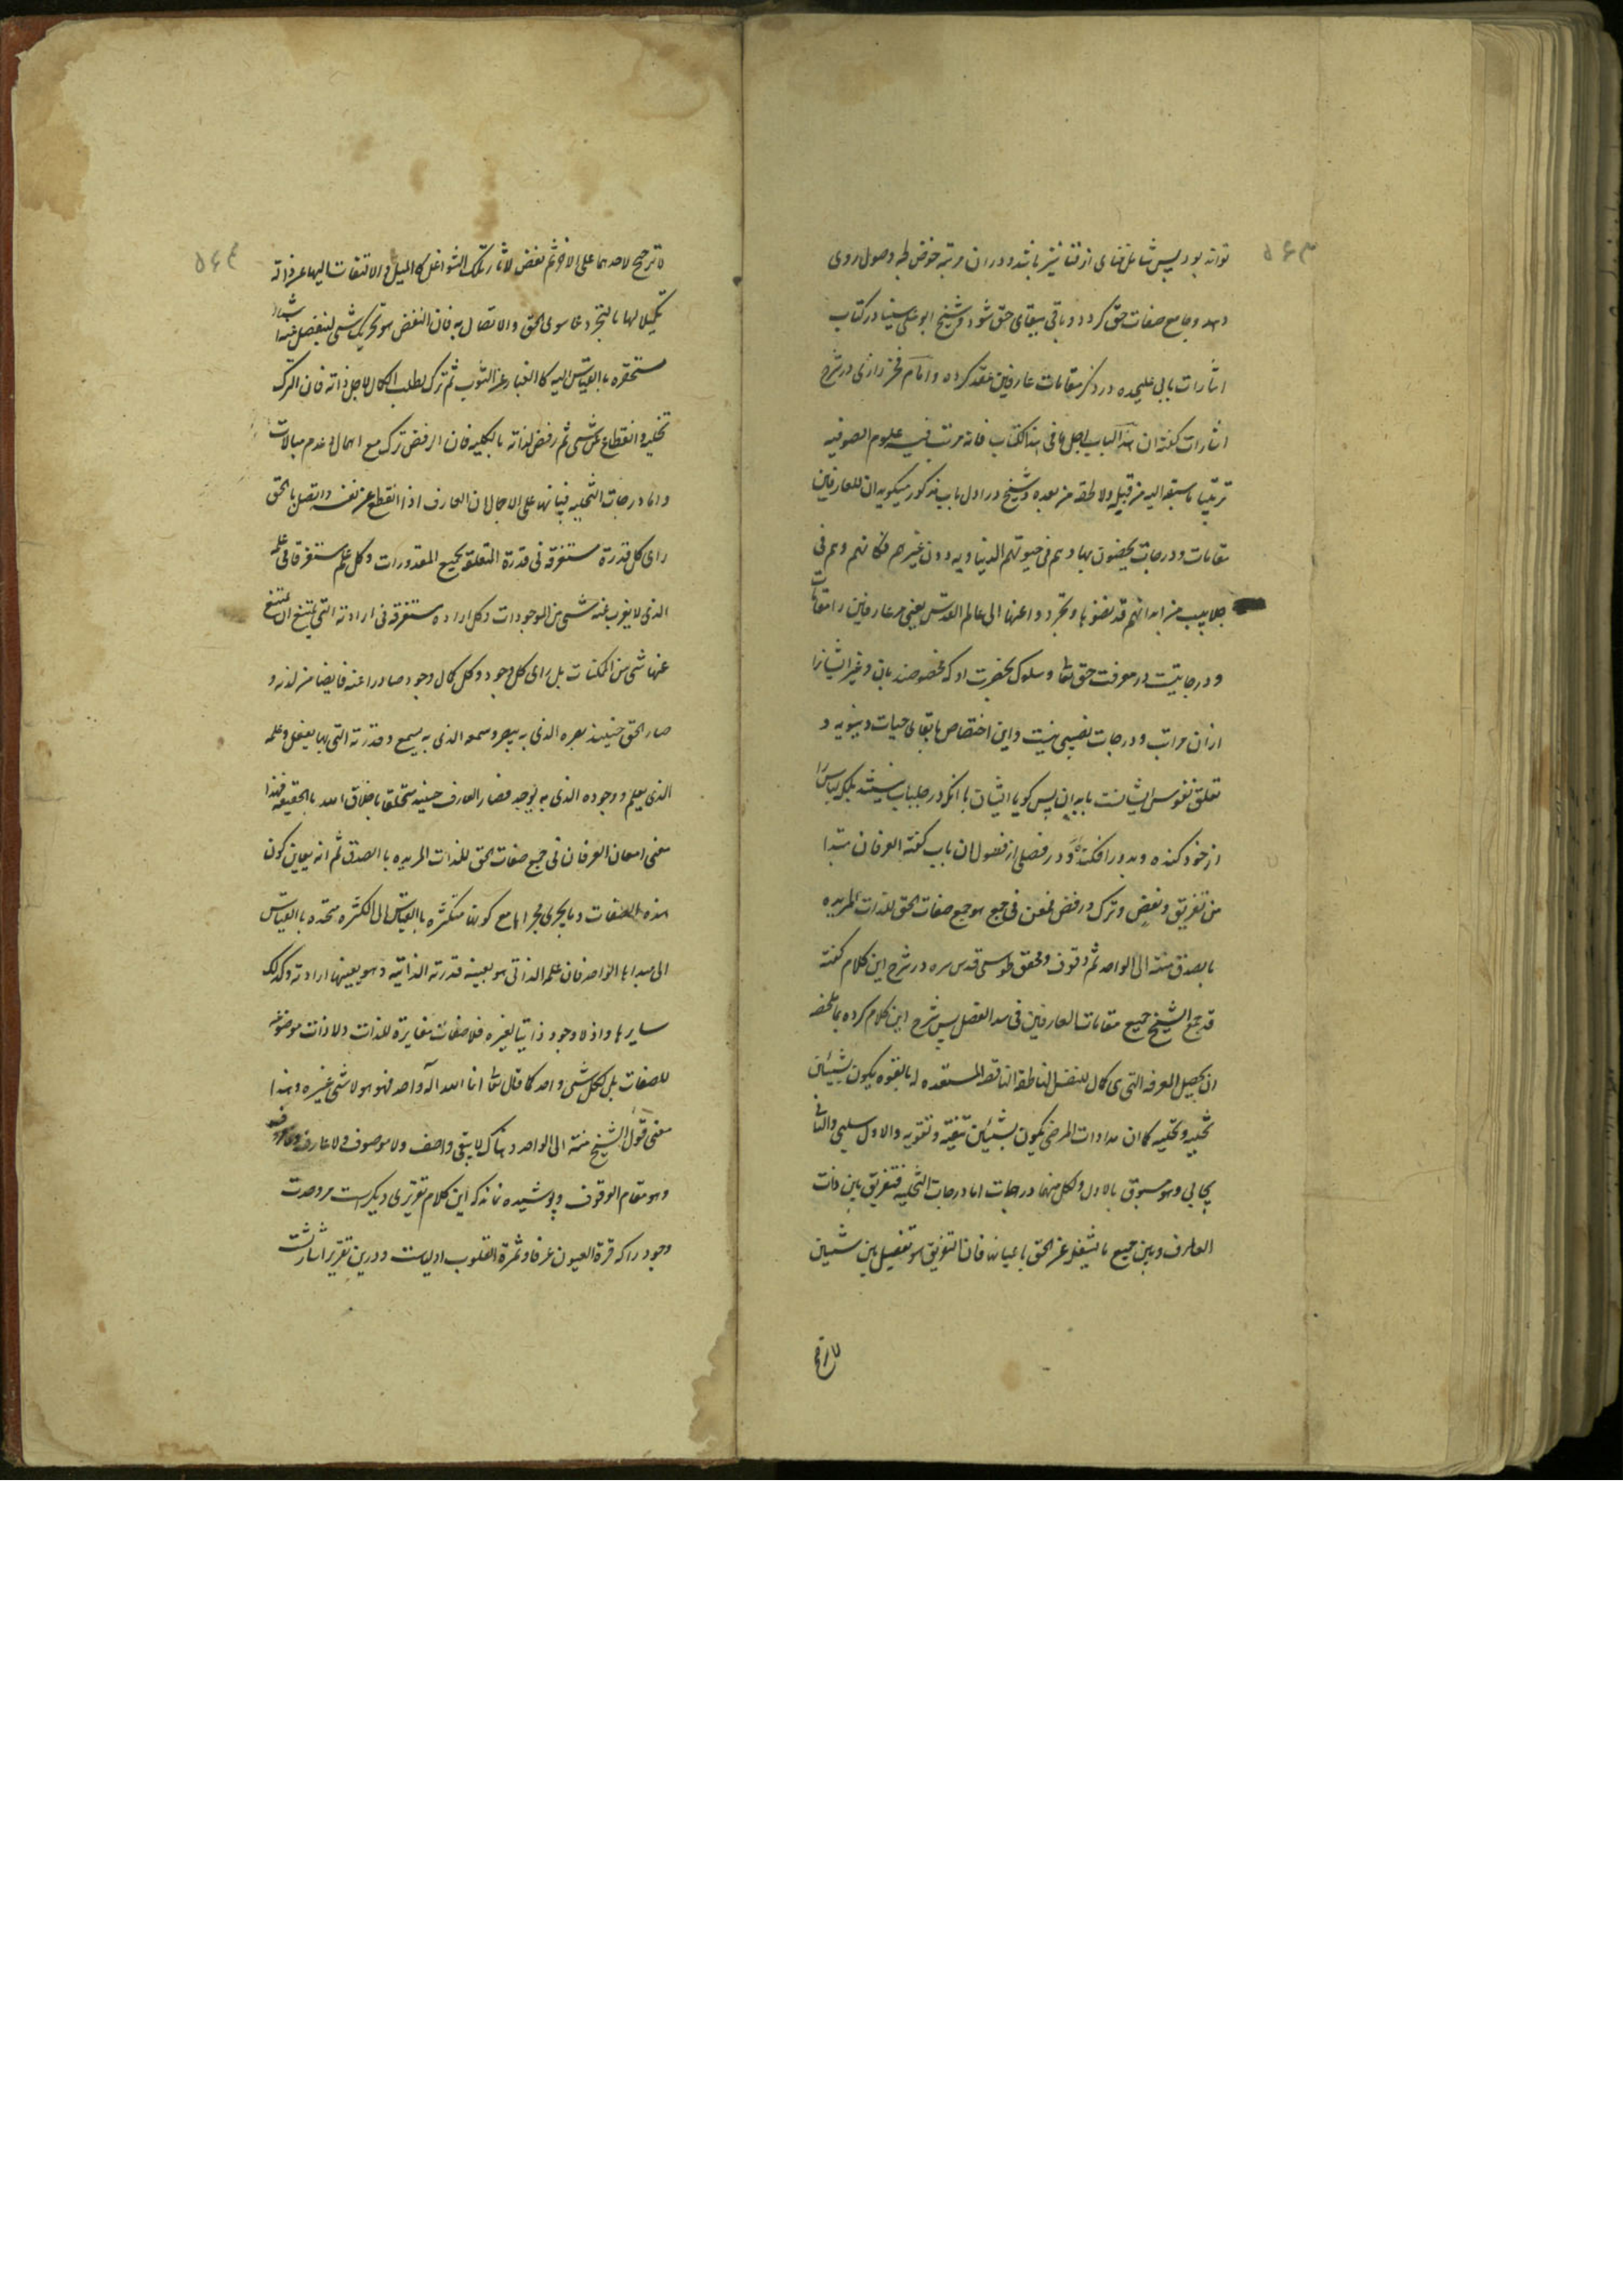 ۵۶۳
تواند بود پس شامل فنای از فنا نیز باشد و در ان مرتبه خوض لجه وصول روی
دهد و جامع صفات حق کردد و باقی ببقای حق شود و شیخ ابو علی سینا در کتاب
اشارات بابی علیحده در ذکر مقامات عارفین عقد کرده و امام فخر رازی در شرح
اشارات کفته ان هذا الباب اجل ما فی هذا الکتاب فانه مرتب فیه علوم الصوفیه
ترتیبا ما سبقه الیه من قبله ولا لحقه من بعده و شیخ در اول باب مذکور میکوید ان للعارفین
مقامات و درجات یخصون بها وهم فی حیوتهم الدنیاویه دون غیرهم فکانهم وهم فی
جلابیب من ابدانهم قد نضوها وتجردوا عنها الی عالم القدس یعنی مر عارفین را مقامات
و درجاتیست در معرفت حق تعا و سلوک بحضرت او که مخصوصند بان و غیر ایشانرا
ازان مراتب و درجات نصیبی نیست و این اختصاص با بقای حیات دنیویه و
تعلق نفوس ایشانست بابدان پس کویا ایشان با انکه در جلباب بشریتند بلکه لباس را
از خود کنده و بدور افکنده و در فصلی از فصول ان باب کفته العرفان مبتدا
من تفریق ونفض وترک ورفض ممعن فی جمع هو جمع صفات الحق للذات المریده
بالصدق منته الی الواحد ثم وقوف و محقق طوسی قدس سره در شرح این کلام کفته
قد جمع الشیخ جمیع مقامات العارفین فی هذا الفصل پس شرح این کلام کرده بما ملخصه
ان تحصیل المعرفه التی هی کمال للنفس الناطقة الناقصه المستعده له بالقوه یکون بشیئین
تخلیه وتحلیه کما ان مداوات المرضی یکون بشیئین تنقیه وتقویه والاول سلبی والثانی
ایجابی وهو مسبوق بالاول ولکل منهما درجات اما درجات التخلیه فتفریق بین ذات
العارف وبین جمیع ما یشغله عن الحق باعیانه فان التفریق هو تفصیل بین شیئین
لا ترجح
۵۶۴
لا ترجح لاحدهما علی الاخر ثم نفض لاثار تلک الشواغل کالمیل والالتفات الیها عن ذاته
تکمیلا لها بالتجرد عما سوی الحق والاتصال به فان النفض هو تحریک شی لینفصل عنه اشیاء
مستحقره بالقیاس الیه کالغبار عن الثوب ثم ترک لطلب الکمال لاجل ذاته فان الترک
تخلیه وانقطاع عن شی ثم رفض لذاته بالکلیه فان الرفض ترک مع اهمال وعدم مبالات
واما درجات التحلیه فبیانها علی الاجمال ان العارف اذا انقطع عن نفسه واتصل بالحق
رای کل قدرة مستغرقه فی قدرة المتعلقه بجمیع المقدورات وکل علم مستغرقا فی علمه
الذی لا یعزب عنه شی من الموجودات وکل اراده مستغرقه فی ارادته التی یمتنع ان یمتنع
عنها شی من الممکنات بل رای کل وجود وکل کمال وجود صادرا عنه فایضا من لدنه و
صار الحق حینئذ بصره الذی به یبصر وسمعه الذی به یسمع وقدرته التی بها یفعل وعلمه
الذی یعلم و وجوده الذی به یوجد فصار العارف حینئذ متخلقا باخلاق الله بالحقیقه فهذا
معنی امعان العرفان فی جمع صفات الحق للذات المریده بالصدق ثم انه یعاین کون
هذه الصفات وما یجری مجراها مع کونها متکثره بالقیاس الی الکثره متحده بالقیاس
الی مبداها الواحد فان علمه الذاتی هو بعینه قدرته الذاتیه وهو بعینها ارادته وکذلک
سایرها واذ لا وجود ذاتیا لغیره فلا صفات مغایرة للذات ولا ذات موضوعه
للصفات بل الکل شی واحد کما قال تعا انما الله اله واحد فهو هو لا شی غیره وهذا
معنی قول الشیخ منته الی الواحد وهناک لا یبقی واصف ولا موصوف ولا عارف ولا معروف
وهو مقام الوقوف و پوشیده نماند که این کلام تقریری دیکر است مر وحدت
وجود را که قرة العیون عرفا و ثمرة القلوب اولیاست و درین تقریر اشارتست